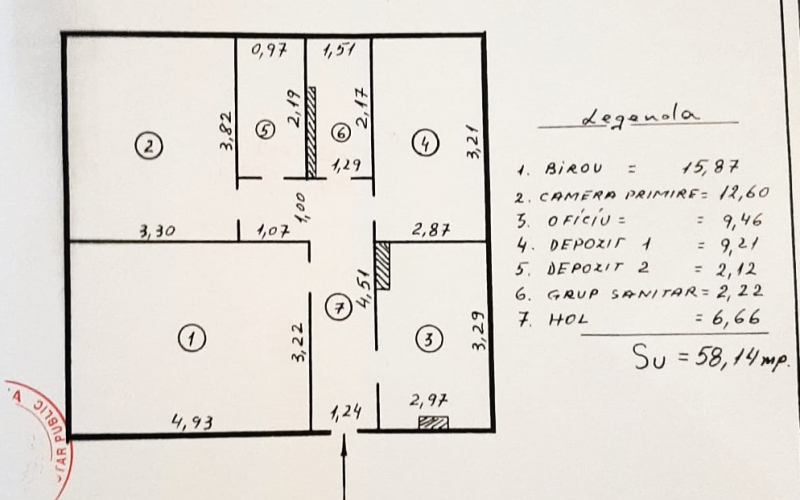 0,97
1,51
3,82
2,19
2,17
3,21
2
5
6
4
1,29
1,00
3,30
1,07
2,87
4,51
7
3,22
3,29
1
3
4,93
1,24
2,97
Legenda
1. BIROU = 15,87
2. CAMERA PRIMIRE = 12,60
3. OFICIU = = 9,46
4. DEPOZIT 1 = 9,21
5. DEPOZIT 2 = 2,12
6. GRUP SANITAR = 2,22
7. HOL = 6,66
Su = 58,14 mp.
TAR PUBLIC